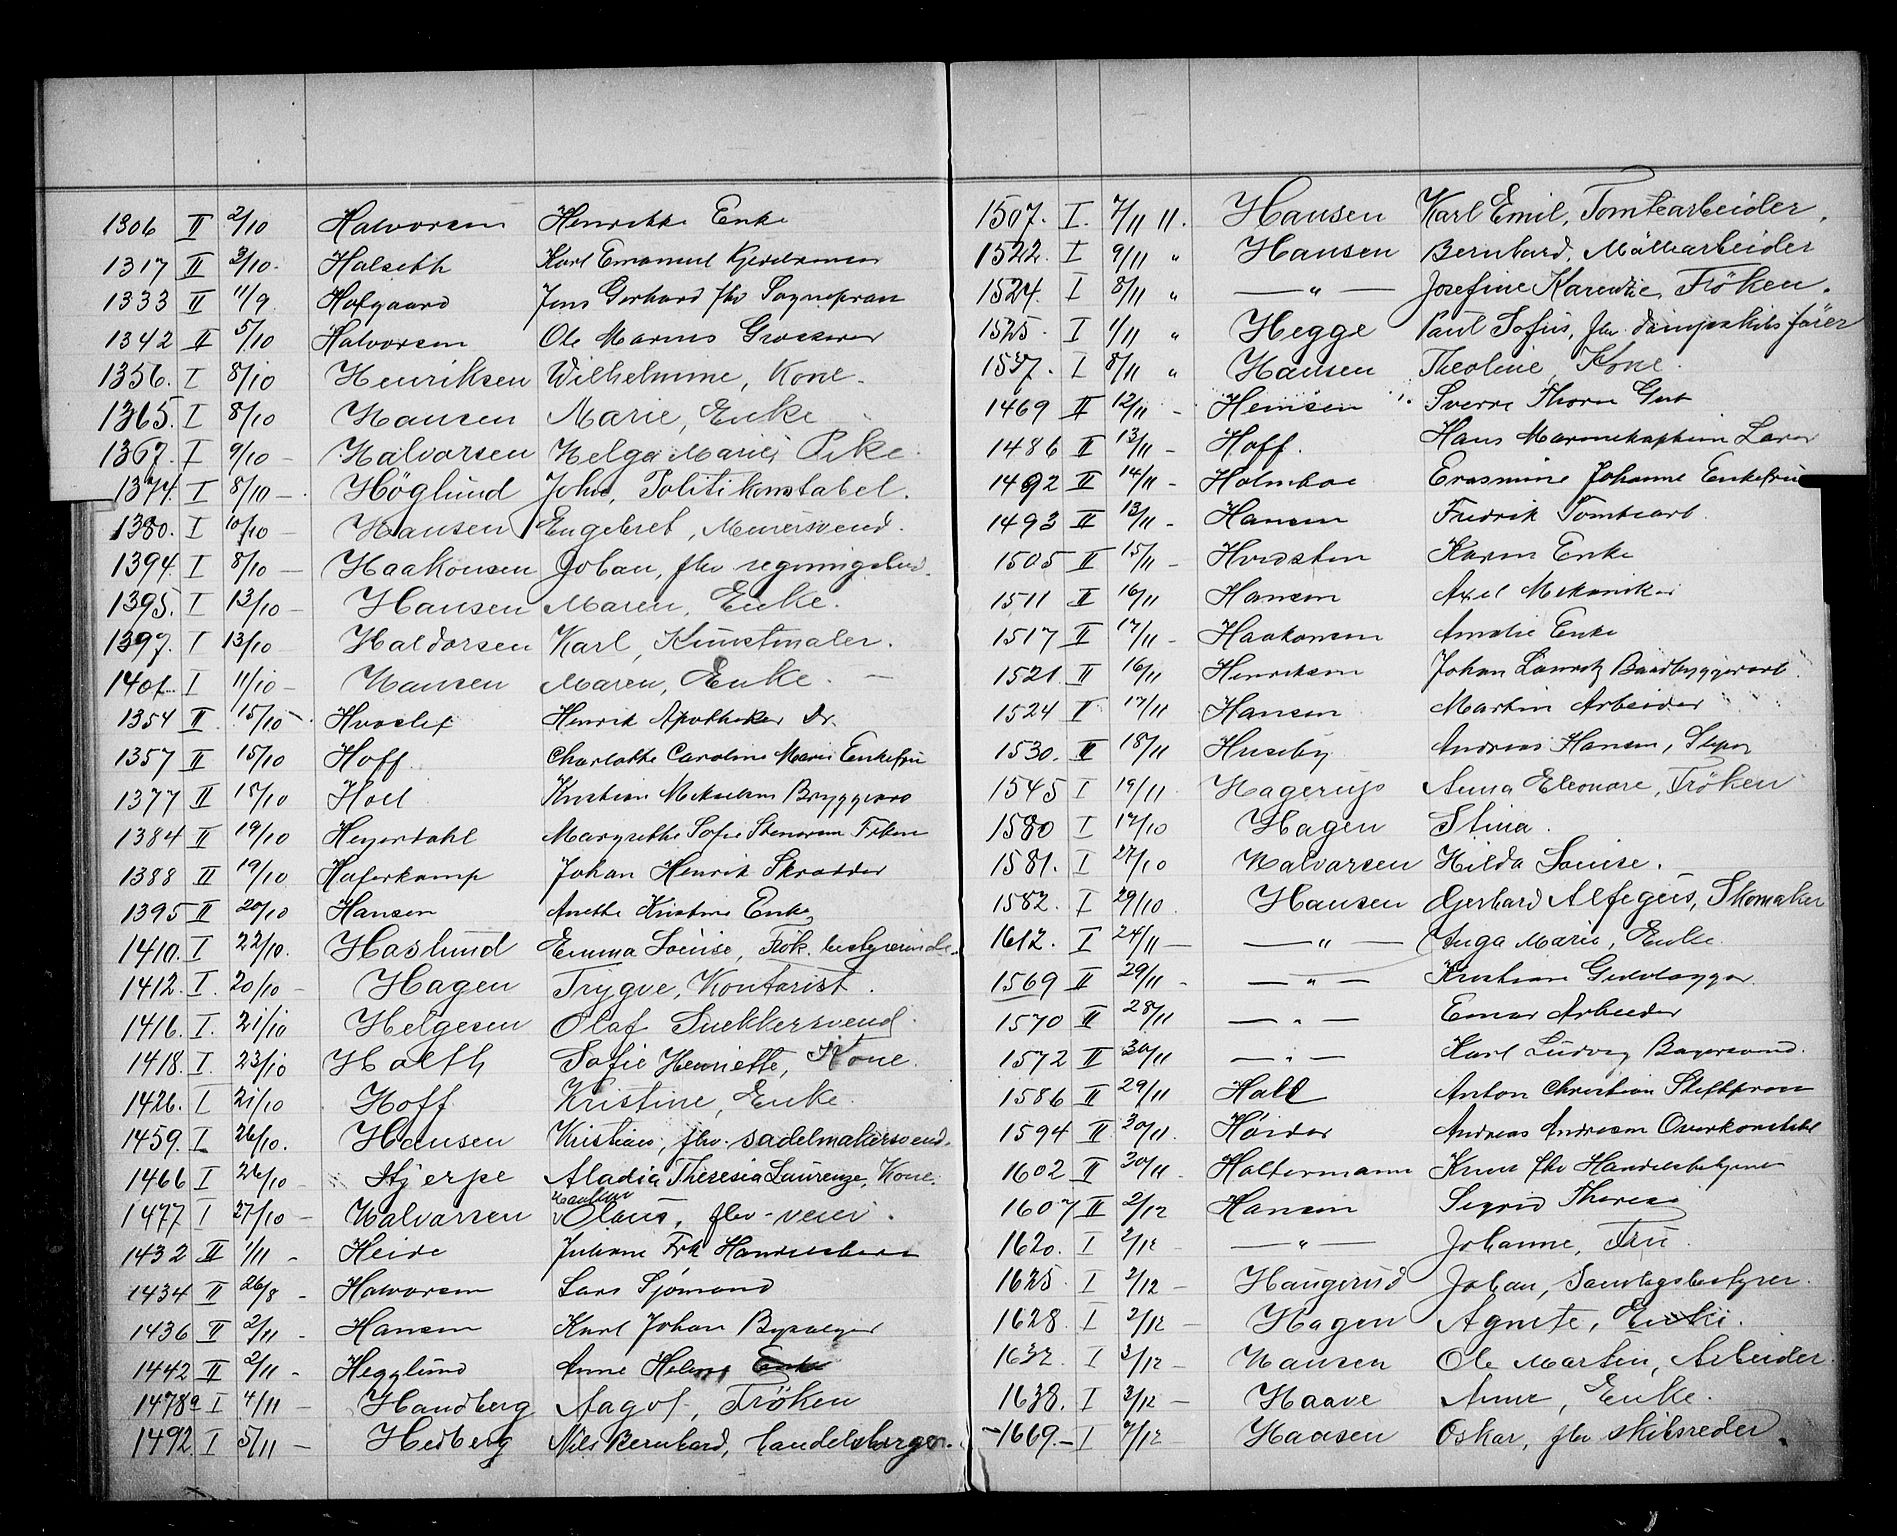 1306 II 2/10 Halvorsen Henrikke Enke
1317 II 3/10. Halseth Karl Emanuel
1333 II 11/9. Hofgaard Jens Gerhard fhv Sognepræst
1342 II 5/10 Halvorsen Ole Marius Grosserer
1356. I 8/10 Henriksen Wilhelmine, Kone.
1365. I 8/10 Hansen Marie, Enke
1367. I 9/10 - Halvorsen Helga Marie, Pike.
1374. I 8/10 - Höglund John, Politikonstabel.
1380. I 10/10 Hansen Engebret, Murersvend.
1394. I 8/10 - Haakonsen Johan, fhv regningsbud.
1395. I 13/10 - Hansen Maren, Enke.
1397. I 13/10 Haldorsen Karl, Kunstmaler.
1401. I 11/10 - Hansen Maren, Enke. -
1354 II 15/10 -. Hvoslef Henrik Apotheker Dr.
1357 II 15/10 Hoff. Charlotte Caroline Marie Enkefru
1377 II 15/10 Holl Kristian Bryggearb
1384 II 19/10 Heyerdahl Margrethe Sofie Stenersen Frøken
1388 II 19/10 Haferkamp Johan Henrik Skrædder
1395 II 20/10 Hansen Anethe Kristine Enke
1410. I 22/10. Haslund Emma Louise, Frök. bestyrerinde.
1412. I. 20/10 - Hagen Trygve, Kontorist.
1416. I. 21/10 Helgesen Olaf Snekkersvend.
1418. I. 23/10 Holth Sofie Henriette, Kone.
1426. I 21/10 Hoff Kristine, Enke.
1459. I 26/10. Hansen Kristian, fhv. sadelmakersvend.
1466 I 26/10 - Hjerpe Aladia Theresia Laurenze, Kone.
1477 I 27/10 - Halvorsen Olaus, fhv - veier.
1432 II 1/11 - Heide Juliane Frk Handelsbest
1434 II 26/8 - Halvorsen Lars Sjømand
1436 II 2/11 - Hansen Karl Johan Bysælger
1442 II 2/11 - Hegglund Anne Helene Enke
1478a I 4/11 - Handberg Aagot, Fröken
1492. I 5/11 - Hedberg Nils Bernhard, handelsborger.
1507. I. 7/11 11. Hansen Karl Emil, Tomtearbeider.
1522. I 9/11 " Hansen Bernhard, Möllearbeider
1524. I 8/11 " — " — Josefine Karentie, Fröken.
1525. I 1/11 " Hegge Paul Sofus, fhv. dampskibsförer
1537. I 8/11 " Hansen Theoline, Kone.
1469 II 12/11 - Hemsen Sverre Thorn Gut
1486 II 13/11 - Hoff. Hans Marinekaptein Larer
1492 II 14/11 - Holmboe Erasmine Johanne Enkefru
1493 II 13/11 - Hansen Fredrik Tomtearb.
1505 II 15/11 - Hvidsten Karen Enke
1511 II 16/11 Hansen Axel Mekaniker
1517 II 17/11 - Haakonsen Amalie Enke
1521 II 16/11 Henriksen Johan Lauritz Baadbyggerarb.
1524 I 17/11 Hansen Martin Arbeider
1530. II 18/11 Huseby Andreas Hansen,
1545 I 19/11 Hagerup Anna Eleonore, Fröken
1580 I 17/10 Hagen Stina.
1581. I 27/10 Halvorsen Hilda Louise.
1582. I 29/10. Hansen Gerhard Alfegeus, Skomaker
1612. I 24/11 - — " — Inga Marie, Enke.
1569 II 29/11 - — " — Kristian Gulvlægger.
1570 II 28/11 — " — Einar Arbeider
1572 II 30/11 — " — Karl Ludvig Bagersvend.
1586 II 29/11 Hall Anton Christian Stiftsprost
1594 II 30/11. Høidor Andreas Andresen Overkonstabel
1602 II 30/11 - Haltermann Knut fhv Handelsbetjent
1607 II 2/12 Hansen Sigrid Therese
1620. I 2/12 - — " — Johanne, Fru.
1625. I 2/12 - Haugerud Johan, Samlagsbestyrer.
1628. I 2/12 - Hagen Agnete, Enke.
1632. I 3/12 - Hansen Ole Martin, Arbeider.
1638. I 3/12 - Haave Anne, Enke.
-1669. - I 7/12 Hansen Oskar, fhv skibsreder.